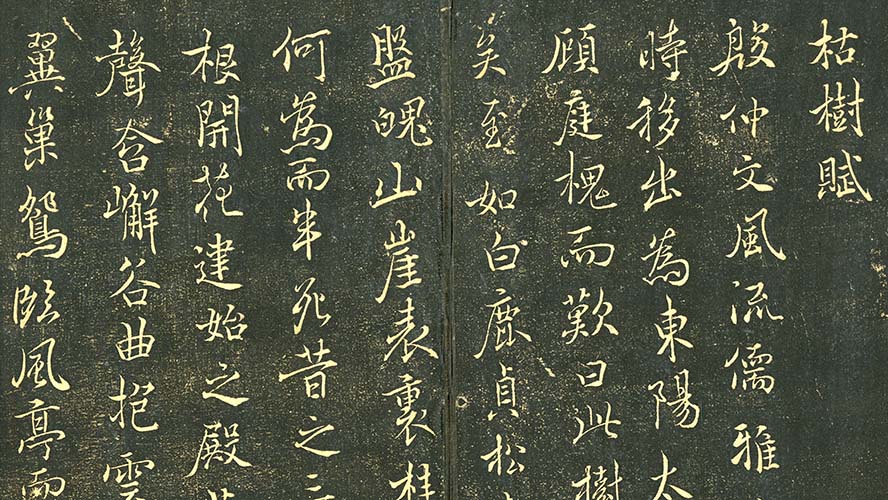 枯樹賦
殷仲文風流儒雅
時移出為東陽太
顧庭槐而歎曰此樹
矣至如白鹿貞松
盤魄山崖表裏桂
何為而半死昔之三
根開花建始之殿
聲含嶰谷曲抱雲
翼巢鴛臨風亭而